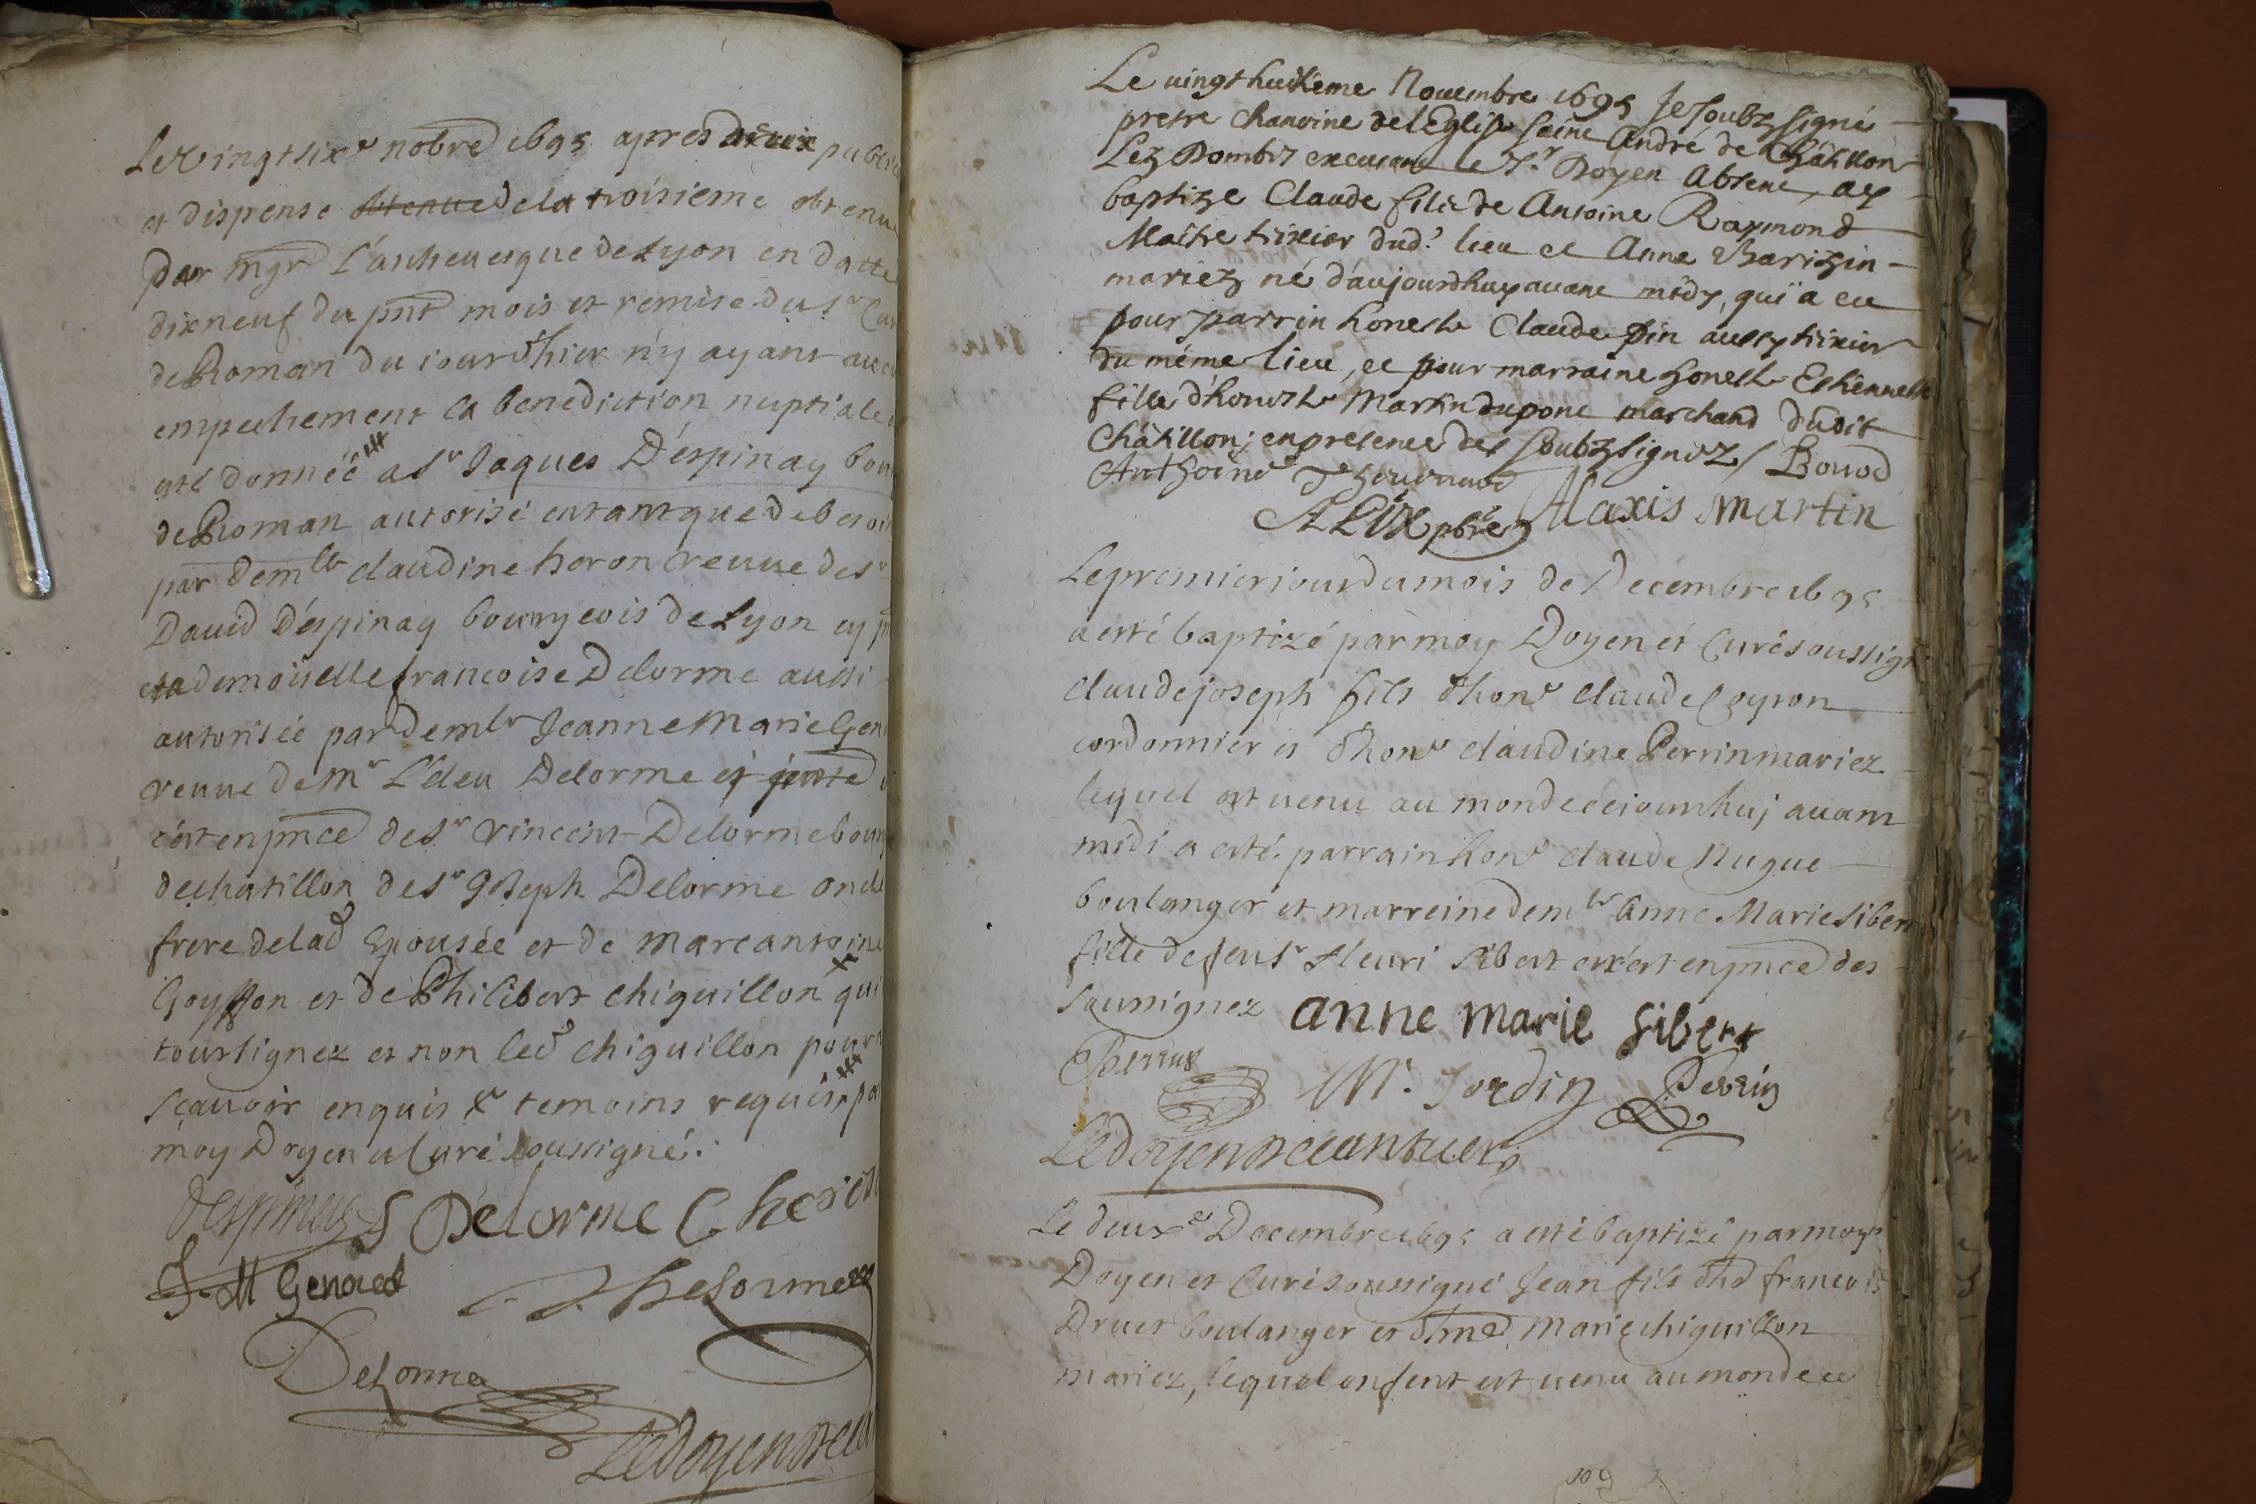 Le vingtsixe nobre 1695 apres deux public
et dispense obtenue dela troisieme obtenue
par mgr L'archeuesque de Lyon en datte
dixneuf du pnt mois et remise du sr Cur
de Roman du iour d'hier n'y ayant aucu
empechement la benediction nuptiale
donnée a sr Jaques D'éspinay bour
de Roman autorisé entant que de besoin
par demlle claudine heron veuue de sr
Dauid D'éspinay bourgeois de Lyon cy
demoiselle francoise Delorme aussi
autorisée par demlle Jeanne Marie Gen
veuue de mr L'éleu Delorme
c'est en pnce de sr vincent Delorme bourg
de chatillon de sr Joseph Delorme oncle
frere de lad Epousée et de marcantoine
Goyffon et de Philibert chiguillon qui
tous signez et non led chiguillon pour
scauoir enquis & temoins requis pa
moy Doyen et Curé soussigné.
despinay F Delorme C heron
J. M Genoud Delorme
Delorme
Ledoyen
Le uingt huitieme Nouembre 1695 Je soubz signé
pretre chanoine de l'Eglise saint André de Châtillon
Lez Dombes excusant le Sr. Doyen absent, ay
baptize Claude fils de Antoine Raymond
Maître tixier dud.t lieu et Anne
mariez né d'aujourdhuy auant midy, qui a eu
pour parrin honeste Claude Pin aussy tixier
du même lieu, et pour marraine honeste Estiennette
fille d'honeste Martin dupont marchand dudit
Châtillon; en presence des soubzsignez / Bouod
Anthoine
ALIX pbre Alaxis Martin
Le premier jour du mois de Decembre 1695
a esté baptizé par moy Doyen et Curé soussign
claude joseph fils d'hone claude Goyron
cordonnier et d'hone claudine Perrin mariez
lequel est uenu au monde ceiourdhuj auant
midi a esté parrain hone claude Nugue
boulanger et marreine demlle Anne Marie Sibert
fille de feu sr Fleuri Sibert et c'est en pnce des
soussignez anne marie sibert
M. Jordin Perrin
Ledoyen
Le deuxe Decembre 1695 a esté baptizé par moy
Doyen et Curé soussigné Jean fils d'ho francois
Druet boulanger et d'hned Marie chiguillon
mariez, lequel enfent est uenu au monde ce
109